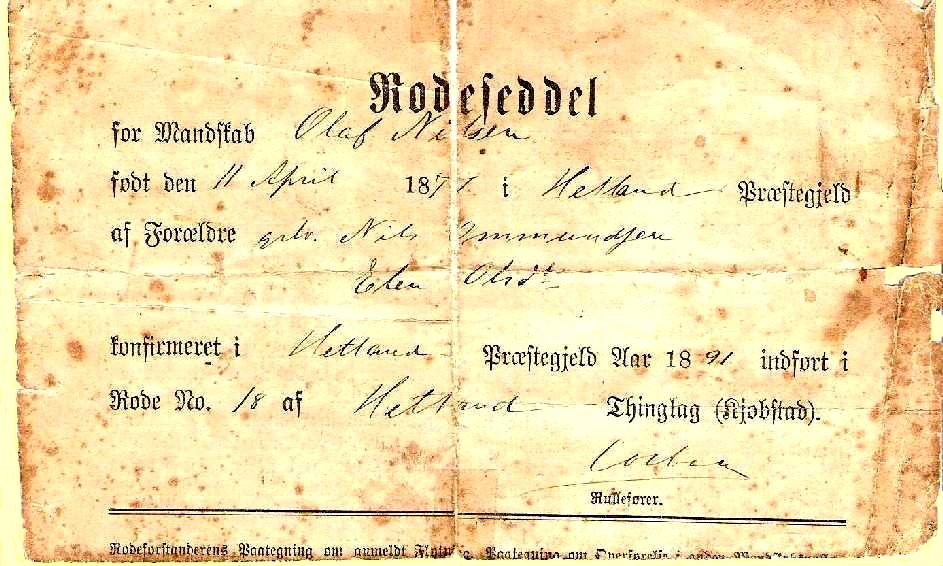 Rodeseddel
for Mandskab Olaf Nilsen
født den 11 April 1877 i Hetland Præstegjeld
af Forældre Nils
Olsdt
konfirmeret i Hetland Præstegjeld Aar 1891 indført i
Rode No. 18 af Hetland Thinglag (Kjøbstad).
Rullefører.
Rodeforstanderens Paategning om anmeldt Paategning om